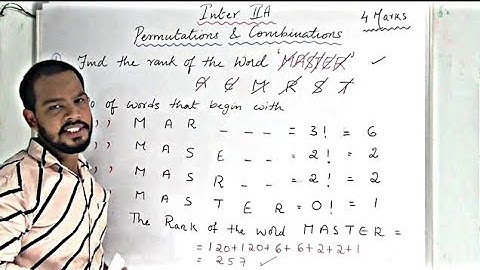 Inter IIA
4 Marks
Permutations & Combinations
Find the rank of the Word 'MASTER' ✓
A E M R S T
o of words that begin with
" " M A R _ _ _ = 3! = 6
" " M A S E _ _ = 2! = 2
" " M A S R _ _ = 2! = 2
M A S T E R = 0! = 1
The Rank of the word MASTER =
= 120+120+6+6+2+2+1
= 257 ✓